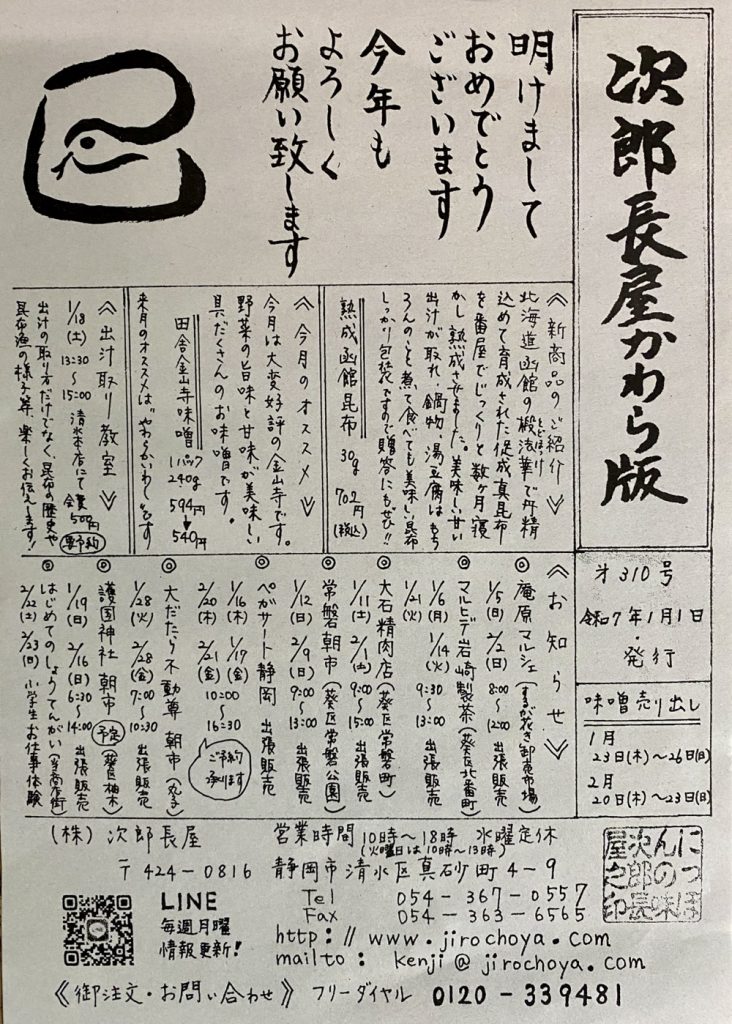 次郎長屋かわら版
才310号
令和7年1月1日
・発行
味噌売り出し
1月
23日(木)～26日(日)
2月
20日(木)～23日(日)
明けまして
おめでとう
ございます
今年も
よろしく
お願い致します
《新商品のご紹介》
北海道函館の椴法華で丹精
とどほっけ
込めて育成された促成真昆布
を番屋でじっくりと数ヶ月寝
かし、熟成させました。美味しい甘い
出汁が取れ、鍋物、湯豆腐はもち
ろんのこと煮て食べても美味しい昆布
しっかり包装ですので贈答にもぜひ!!
熟成函館昆布 30g 702円(税込)
《今月のオススメ》
今月は大変好評の金山寺です。
野菜の旨味と甘味が美味しい
具だくさんのお味噌です。
田舎金山寺味噌 1パック240g 594円→540円
来月のオススメは“やわらかいわし”です
《出汁取り教室》
1/18(土) 13:30～15:00 清水本店にて 会費500円 要予約
出汁の取り方だけでなく、昆布の歴史や
昆布漁の様子等、楽しくお伝えします!
《お知らせ》
◎庵原マルシェ(するが花き卸売市場)
1/5(日) 2/2(日) 8:00～12:00 出張販売
◎マルヒデ岩崎製茶(葵区北番町)
1/6(月) 1/14(火) 9:30～13:00
1/21(火)
◎大石精肉店(葵区常磐町)
1/11(土) 2/1(土) 9:00～15:00 出張販売
◎常磐朝市(葵区常磐公園)
1/12(日) 2/9(日) 9:00～13:00 出張販売
◎ペガサート静岡 出張販売
1/16(木) 1/17(金) 10:00～16:30
2/20(木) 2/21(金)
ご予約承ります
◎大だたら不動尊 朝市(丸子)
1/28(火) 2/28(金) 7:00～10:30 出張販売
◎護国神社 朝市 予定(葵区柚木)
1/19(日) 2/16(日) 6:30～14:00 出張販売
◎はじめてのしょうてんがい
2/22(土) 2/23(日) 小学生お仕事体験
(株) 次郎長屋
営業時間 10時～18時 水曜定休
(火曜日は10時～13時)
〒424-0816
静岡市清水区真砂町4-9
Tel 054-367-0557
Fax 054-363-6565
http://www.jirochoya.com
mailto: kenji@jirochoya.com
LINE
毎週月曜
情報更新!
《御注文・お問い合わせ》フリーダイヤル 0120-339481
にっぽ
んの味
次郎長
屋之印